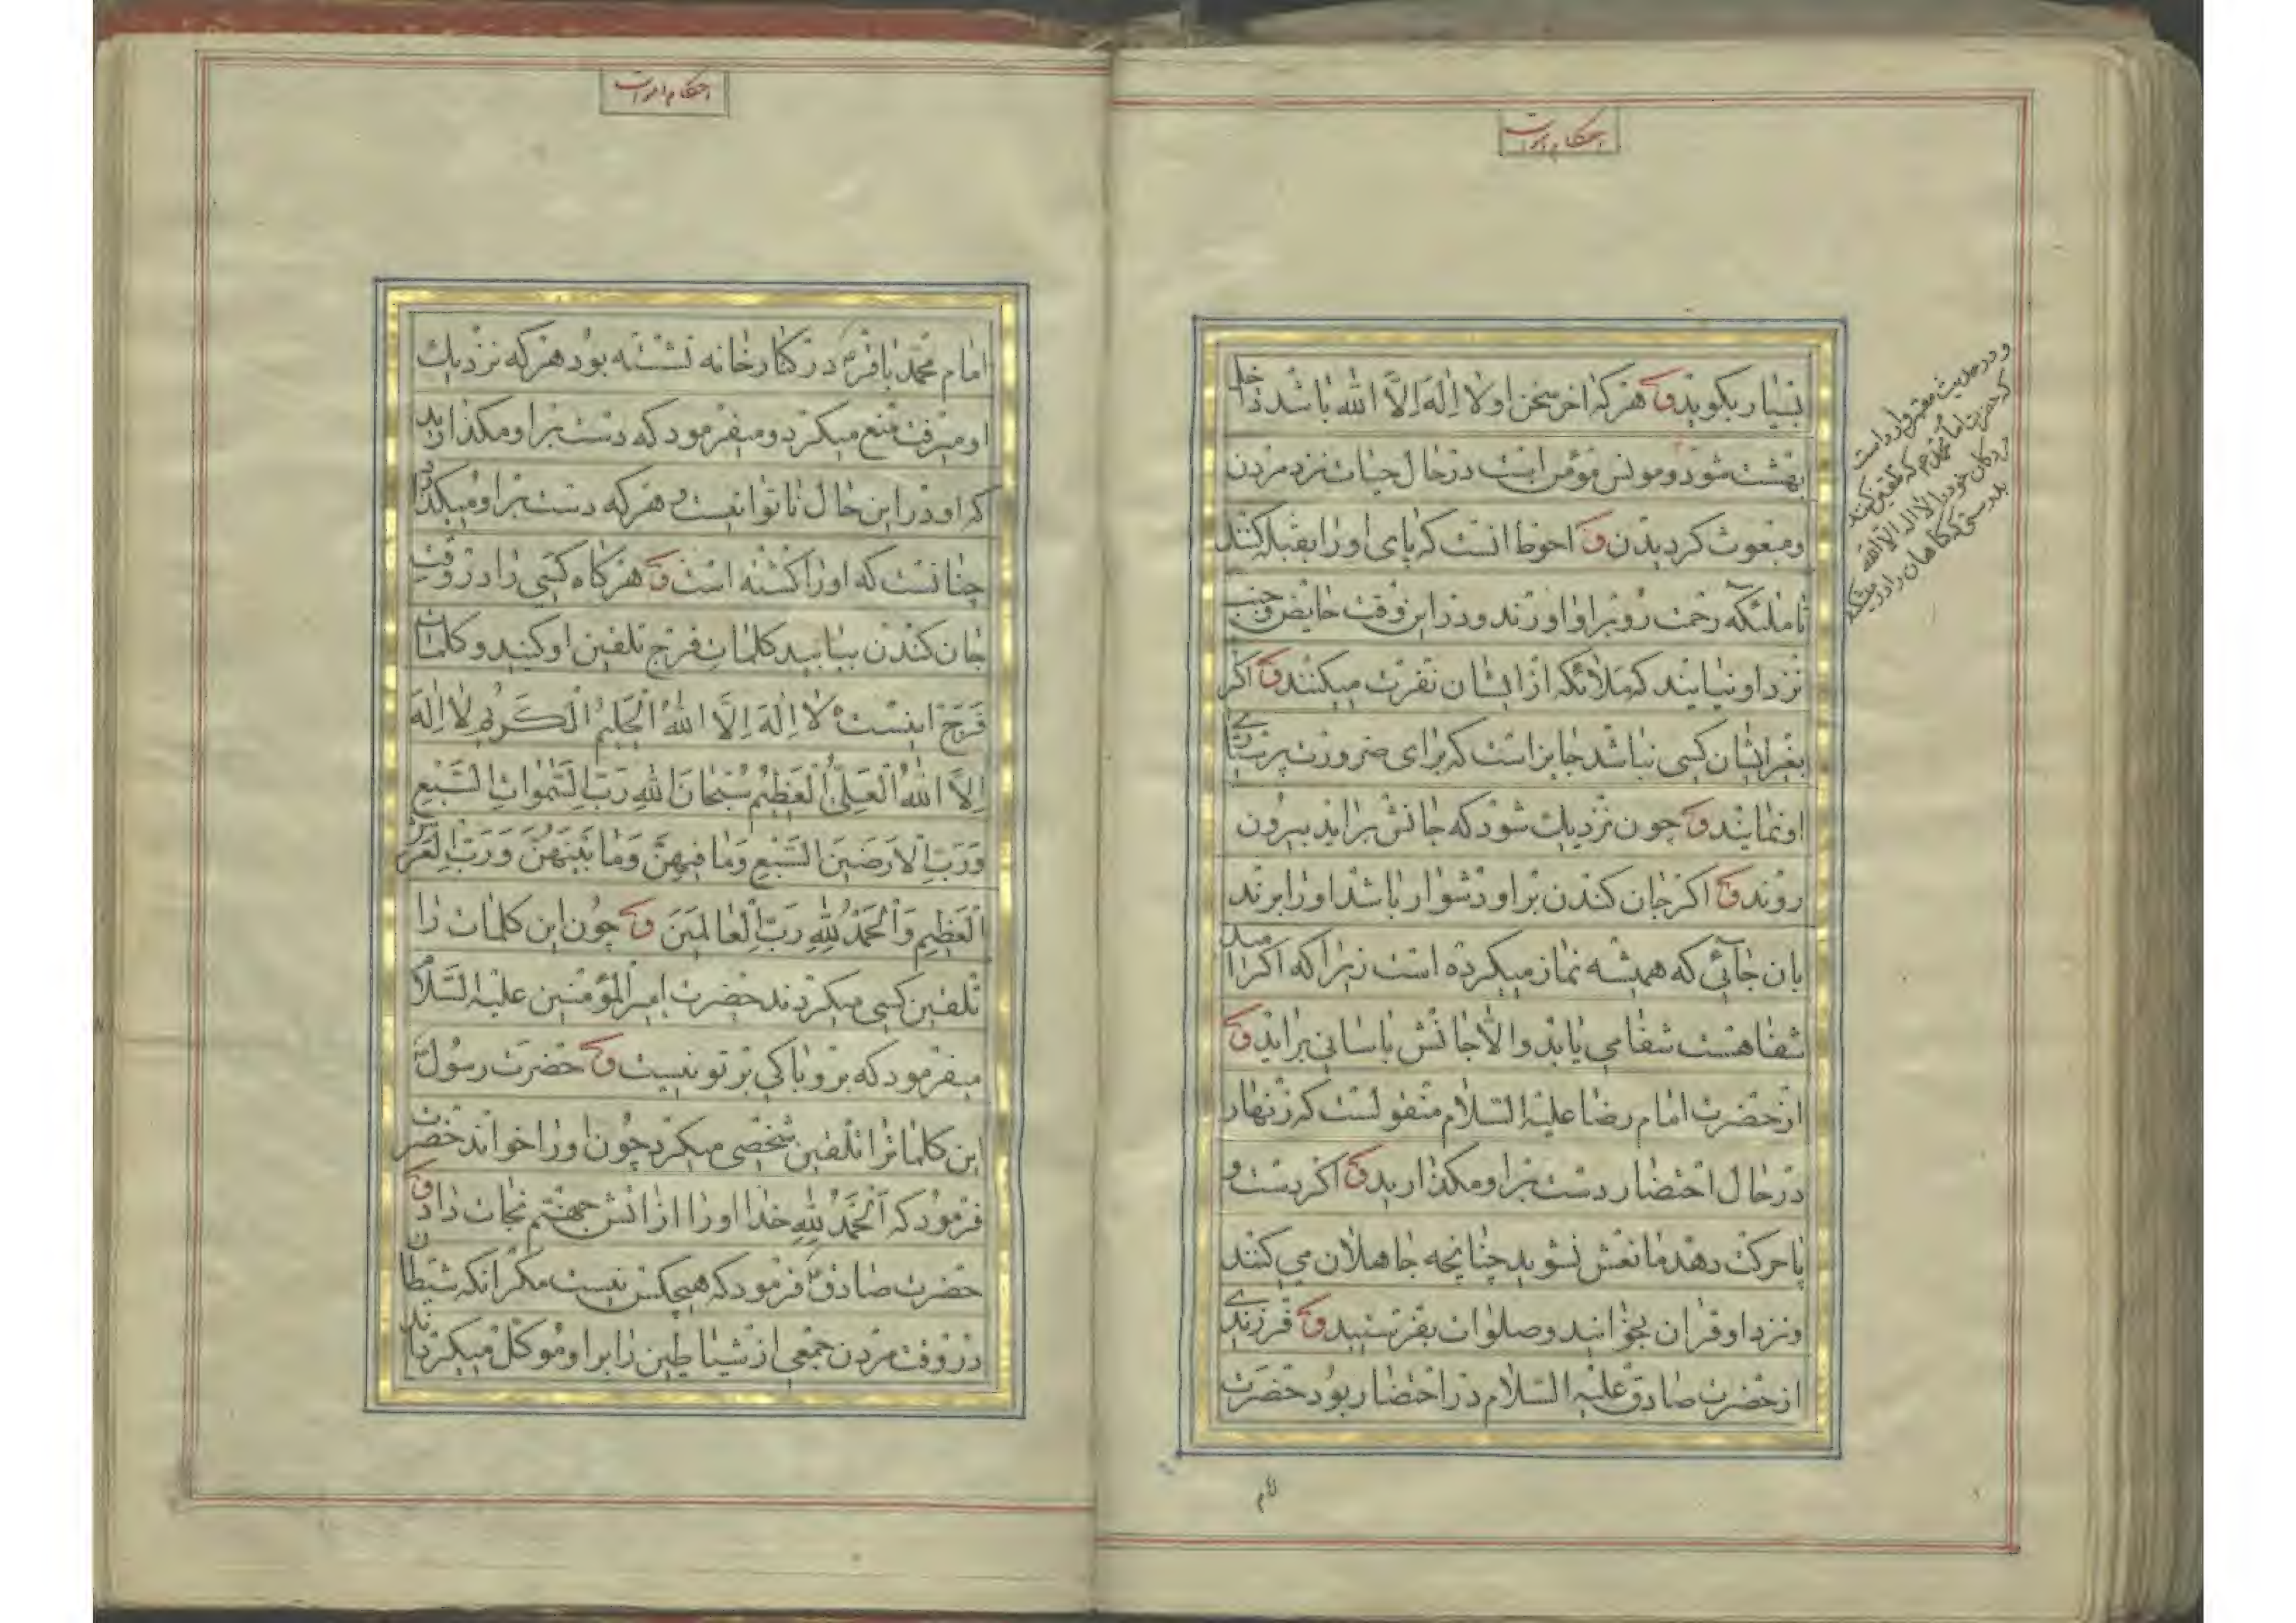 احکام اموات
بسیار بکویند ق هر که اخر سخن او لا اِلٰهَ اِلاَّ الله باشد داخل
بهشت شود و مونس مؤمن است در حال حیات نزد مردن
و مبعوث کردیدن ق احوط انست که پای او را بقبله کنند
تا ملئکه رحمت رو بر او اورند و در این وقت حایض و جنب
نزد او نیایند که ملائکه از ایشان نفرت میکنند ق اکر
بغیر ایشان کسی نباشد جایز است که برای ضرورت پرستاری
او نمایند ق چون نزدیك شود که جانش براید بیرون
روند ق اکر جان کندن بر او دشوار باشد او را برند
بان جائی که همیشه نماز میکرده است زیرا که اکر امید
شفا هست شفا می یابد والاّ جانش باسانی براید ق
از حضرت امام رضا علیه السلام منقولست که زنهار
در حال احتضار دست بر او مکذارید ق اکر دست و
پا حرکت دهد مانعش نشوید چنانچه جاهلان می کنند
و نزد او قران بخوانید و صلوات بفرستید ق فرزندی
از حضرت صادق علیه السلام در احتضار بود حضرت
و در حدیث معتبر وارد است
که حضرت امام محمد که تلقین کنید
مردکان خود را لا اله الا الله
بدرستی که کناهان را در میکند
احکام اموات
امام محمّد باقر در کنار خانه نشسته بود هر که نزدیك
او میرفت منع میکرد و میفرمود که دست بر او مکذارید
که او در این حال ناتوانست و هر که دست بر او میکذارد
چنانست که او را کشته است ق هر کاه کسی را در وقت
جان کندن بیابید کلمات فرج تلقین او کنید و کلمات
فَرَج اینست لا اِلٰهَ اِلاَّ اللهُ الْحَلیمُ الْکَریمُ لا اِلٰهَ
اِلاَّ اللهُ الْعَلِیُّ الْعَظیمُ سُبْحانَ اللهِ رَبِّ السَّمٰواتِ السَّبْعِ
وَرَبِّ الْارَضینَ السَّبْعِ وَما فیهِنَّ وَما بَیْنَهُنَّ وَرَبِّ الْعَرْشِ
الْعَظیمِ وَالْحَمْدُ لِلّٰهِ رَبِّ الْعالَمینَ ق چون این کلمات را
تلقین کسی میکردند حضرت امیر المؤمنین علیه السّلام
میفرمود که برو باکی بر تو نیست ق حضرت رسول
این کلمات را تلقین شخصی میکرد چون او را خواند حضرت
فرمود که اَلْحَمْدُ لِلّٰهِ خدا او را از اتش جهنّم نجات داد ق
حضرت صادق فرمود که هیچکس نیست مکر انکه شیطان
در وقت مردن جمعی از شیاطین را بر او موکل میکرداند